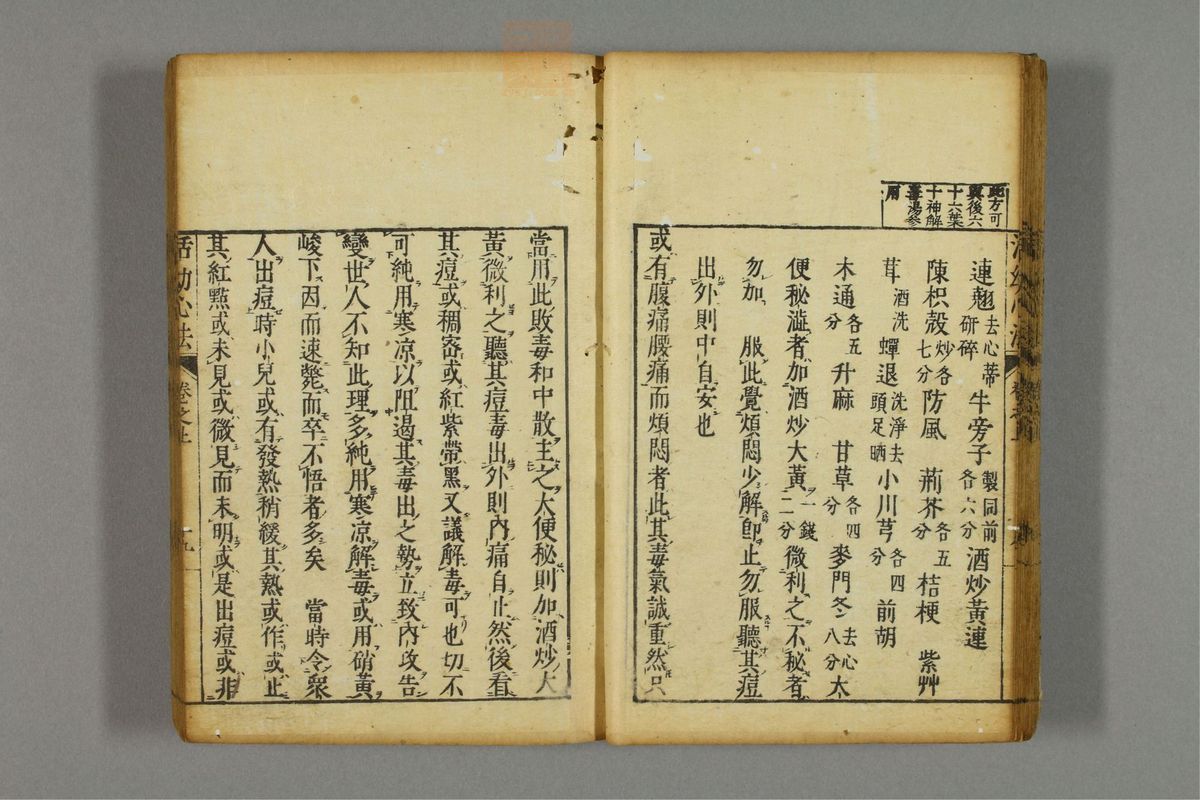 此方可
與後六
十六葉
十神解
毒湯參
用
連翹去心蒂研碎牛旁子製同前各六分酒炒黃連
陳枳殼炒各七分防風荊芥各五分桔梗紫艸
茸酒洗蟬退洗淨去頭足晒小川芎各四分前胡
木通各五分升麻甘草各四分麥門冬去心八分大
便秘澁者加酒炒大黃一錢二分微利之不秘者
勿加服此覺煩悶少解即止勿服聽其痘
出外則中自安也
或有腹痛腰痛而煩悶者此其毒氣誠重然只
當用此敗毒和中散主之大便秘則加酒炒大
黃微利之聽其痘毒出外則內痛自止然後看
其痘或稠密或紅紫帶黑又議解毒可也切不
可純用寒凉以阻遏其毒出之勢立致內攻告
變世人不知此理多純用寒凉解毒或用硝黃
峻下因而速斃而卒不悟者多矣當時令眾
人出痘時小兒或有發熱稍緩其熱或作或止
其紅點或未見或微見而未明或是出痘或非
活幼心法 卷之上